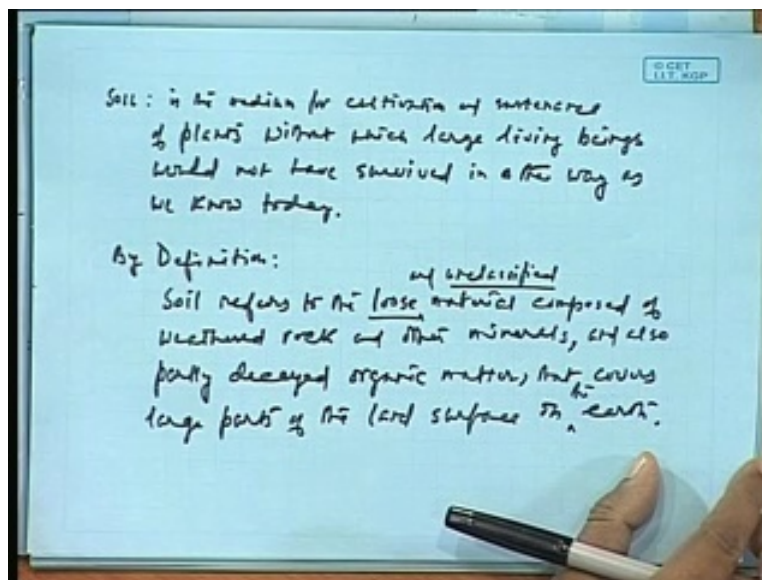 © CET
I.I.T. KGP
Soil : is the medium for cultivation and sustenance
of plants without which large living beings
would not have survived in the way as
we know today.
By Definition:
and unclassified
Soil refers to the loose material composed of
weathered rock and other minerals, and also
partly decayed organic matter, that covers
large parts of the land surface on the earth.